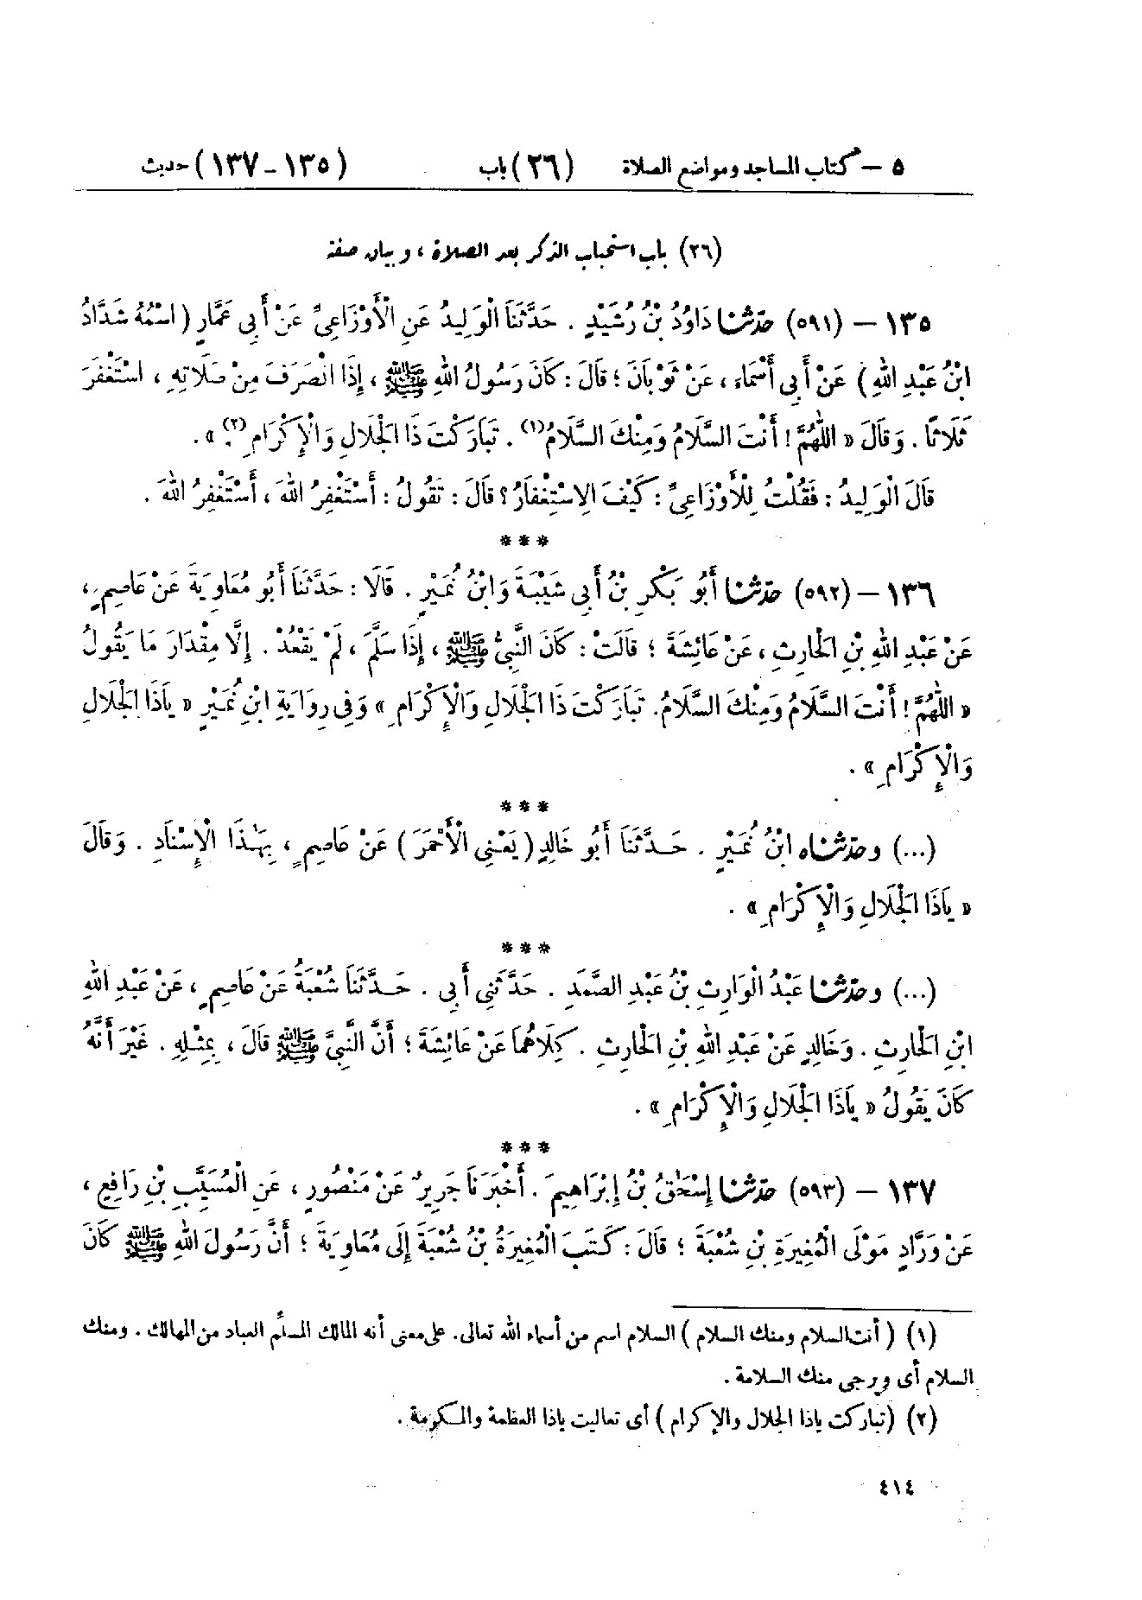 ٥ – كتاب المساجد ومواضع الصلاة (٢٦) باب (١٣٥-١٣٧) حديث
(٢٦) باب استحباب الذكر بعد الصلاة ، وبيان صفته
١٣٥ – (٥٩١) حَدَّثَنَا دَاوُدُ بْنُ رُشَيْدٍ . حَدَّثَنَا الْوَلِيدُ عَنِ الْأَوْزَاعِىِّ عَنْ أَبِى عَمَّارٍ ( اسْمُهُ شَدَّادُ
ابْنُ عَبْدِ اللهِ ) عَنْ أَبِى أَسْمَاءَ ، عَنْ ثَوْبَانَ ؛ قَالَ : كَانَ رَسُولُ اللهِ ﷺ ، إِذَا انْصَرَفَ مِنْ صَلَاتِهِ ، اسْتَغْفَرَ
ثَلَاثًا . وَقَالَ « اللّٰهُمَّ ! أَنْتَ السَّلَامُ وَمِنْكَ السَّلَامُ(١) . تَبَارَكْتَ ذَا الْجَلَالِ وَالْإِكْرَامِ(٢) » .
قَالَ الْوَلِيدُ : فَقُلْتُ لِلْأَوْزَاعِىِّ : كَيْفَ الِاسْتِغْفَارُ ؟ قَالَ : تَقُولُ : أَسْتَغْفِرُ اللهَ ، أَسْتَغْفِرُ اللهَ .
* * *
١٣٦ – (٥٩٢) حَدَّثَنَا أَبُو بَكْرِ بْنُ أَبِى شَيْبَةَ وَابْنُ نُمَيْرٍ . قَالَا : حَدَّثَنَا أَبُو مُعَاوِيَةَ عَنْ عَاصِمٍ ،
عَنْ عَبْدِ اللهِ بْنِ الْحَارِثِ ، عَنْ عَائِشَةَ ؛ قَالَتْ : كَانَ النَّبِىُّ ﷺ ، إِذَا سَلَّمَ ، لَمْ يَقْعُدْ . إِلَّا مِقْدَارَ مَا يَقُولُ
« اللّٰهُمَّ ! أَنْتَ السَّلَامُ وَمِنْكَ السَّلَامُ. تَبَارَكْتَ ذَا الْجَلَالِ وَالْإِكْرَامِ » وَفِى رِوَايَةِ ابْنِ نُمَيْرٍ « يَاذَا الْجَلَالِ
وَالْإِكْرَامِ » .
* * *
(...) وحَدَّثَنَاه ابْنُ نُمَيْرٍ . حَدَّثَنَا أَبُو خَالِدٍ ( يَعْنِى الْأَحْمَرَ ) عَنْ عَاصِمٍ ، بِهٰذَا الْإِسْنَادِ . وَقَالَ
« يَاذَا الْجَلَالِ وَالْإِكْرَامِ » .
* * *
(...) وحَدَّثَنَا عَبْدُ الْوَارِثِ بْنُ عَبْدِ الصَّمَدِ . حَدَّثَنِى أَبِى . حَدَّثَنَا شُعْبَةُ عَنْ عَاصِمٍ ، عَنْ عَبْدِ اللهِ
ابْنِ الْحَارِثِ . وَخَالِدٍ عَنْ عَبْدِ اللهِ بْنِ الْحَارِثِ . كِلَاهُمَا عَنْ عَائِشَةَ ؛ أَنَّ النَّبِىَّ ﷺ قَالَ ، بِمِثْلِهِ . غَيْرَ أَنَّهُ
كَانَ يَقُولُ « يَاذَا الْجَلَالِ وَالْإِكْرَامِ » .
* * *
١٣٧ – (٥٩٣) حَدَّثَنَا إِسْحَٰقُ بْنُ إِبْرَاهِيمَ . أَخْبَرَنَا جَرِيرٌ عَنْ مَنْصُورٍ ، عَنِ الْمُسَيَّبِ بْنِ رَافِعٍ ،
عَنْ وَرَّادٍ مَوْلَى الْمُغِيرَةِ بْنِ شُعْبَةَ ؛ قَالَ : كَتَبَ الْمُغِيرَةُ بْنُ شُعْبَةَ إِلَى مُعَاوِيَةَ ؛ أَنَّ رَسُولَ اللهِ ﷺ كَانَ
(١) ( أنت السلام ومنك السلام ) السلام اسم من أسماء الله تعالى. على معنى أنه المالك المسلّم العباد من المهالك . ومنك
السلام أى ويرجى منك السلامة .
(٢) (تباركت ياذا الجلال والإكرام ) أى تعاليت ياذا العظمة والمكرمة .
٤١٤